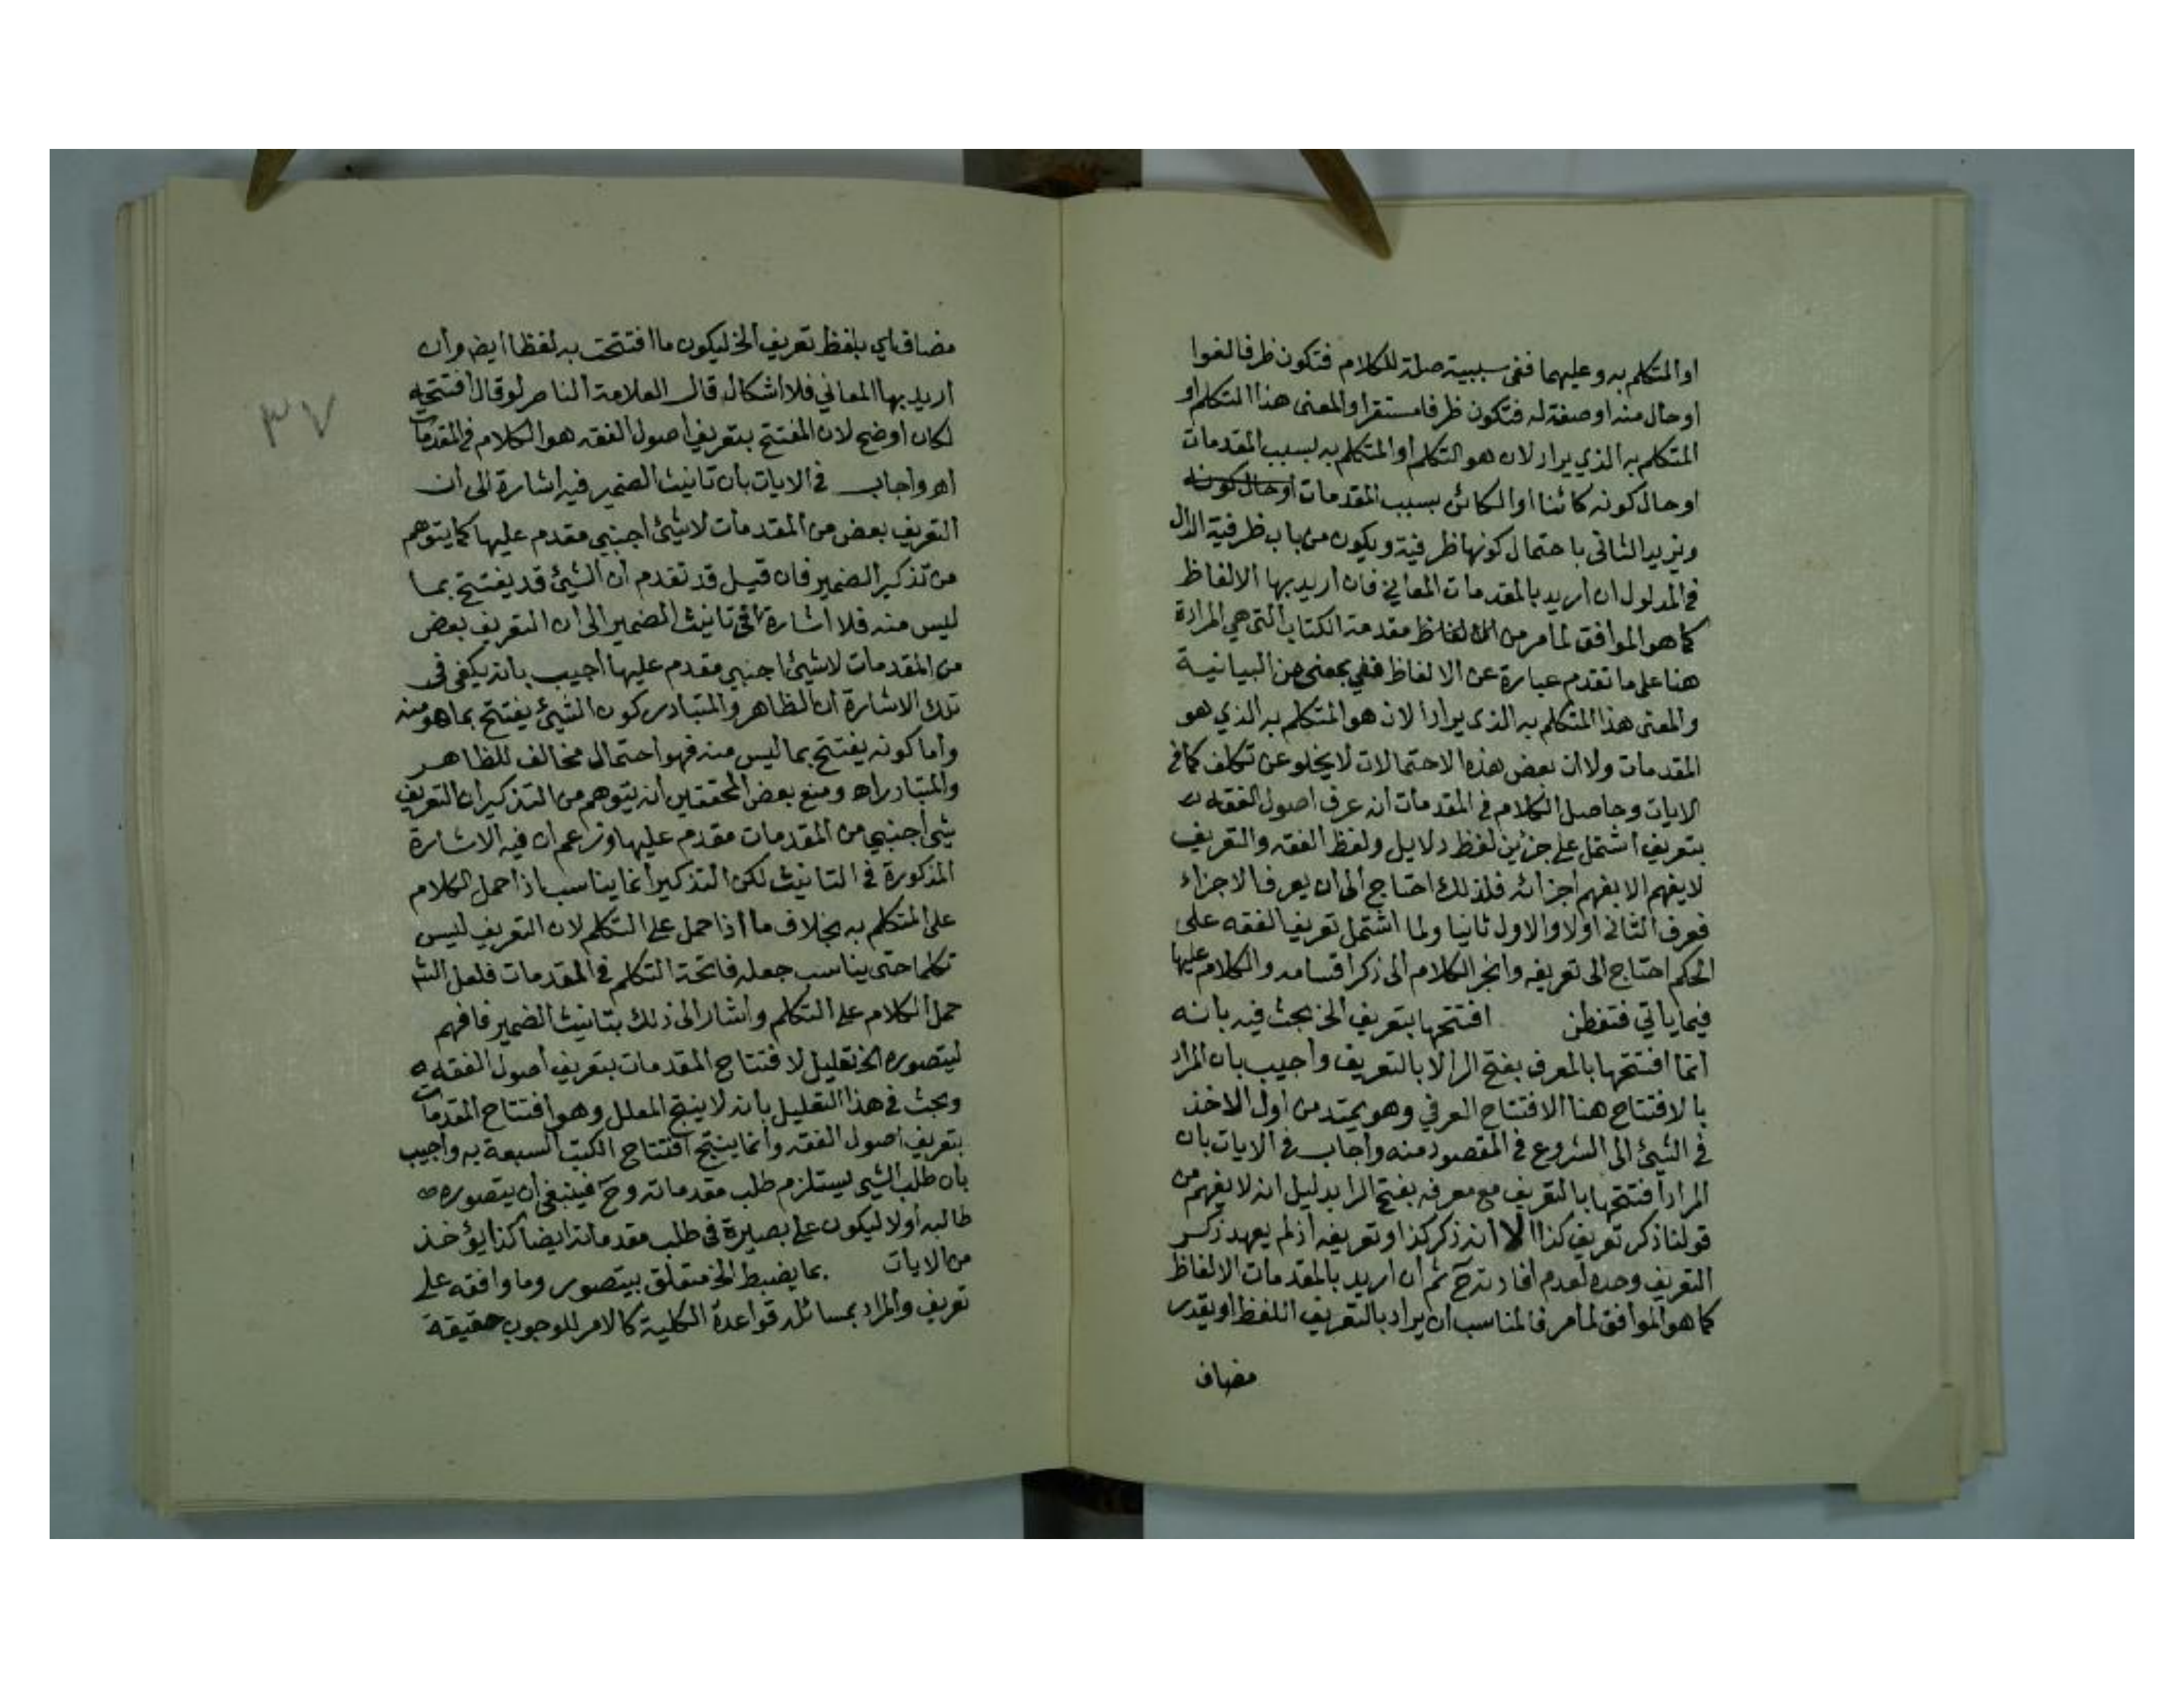 او المتكلم به وعليهما ففى سببية صلة للكلام فتكون ظرفا لغوا
او حال منه او صفة له فتكون ظرفا مستقرا والمعنى هذا المتكلم او
المتكلم به الذي يراد لان هو التكلم او المتكلم به بسبب المقدمات
او حال كونه كائنا او الكائن بسبب المقدمات او حال كونه
ويزيد الثانى باحتمال كونها ظرفية ويكون من باب ظرفية الدال
في المدلول ان اريد بالمقدمات المعاني فان اريد بها الالفاظ
كما هو الموافق لما مر من الالفاظ مقدمة الكتاب التى هي المرادة
هنا على ما تقدم عبارة عن الالفاظ ففي بمعنى من البيانية
والمعنى هذا المتكلم به الذى يراد الان هو المتكلم به الذي هو
المقدمات ولا ان بعض هذه الاحتمالات لا يخلو عن تكلف كما في
الايات وحاصل الكلام في المقدمات انه عرف اصول الفقه
بتعريف اشتمل على جزئين لفظ دلايل ولفظ الفقه والتعريف
لا يفهم الا بفهم اجزائه فلذلك احتاج الى ان يعرف الاجزاء
فعرف الثانى اولا والاول ثانيا ولما اشتمل تعريف الفقه على
الحكم احتاج الى تعريفه وانجر الكلام الى ذكر اقسامه والكلام عليها
فيما ياتي فتفطن افتتحها بتعريف الخ بحث فيه بانه
انما افتتحها بالمعرف بفتح الرا لا بالتعريف واجيب بان المراد
بالافتتاح هنا الافتتاح العرفي وهو يمتد من اول الاخذ
في الشيئ الى الشروع في المقصود منه واجاب في الايات بان
المراد افتتحها بالتعريف مع معرفه بفتح الرا بدليل انه لا يفهم من
قولنا ذكر تعريف كذا الا انه ذكر كذا وتعريفه اذ لم يعهد ذكر
التعريف وحده لعدم افادته ح ثم ان اريد بالمقدمات الالفاظ
كما هو الموافق لما مر فالمناسب ان يراد بالتعريف اللفظ او يقدر
مضاف
٣٧
مضاف اي بلفظ تعريف الخ ليكون ما افتتحت به لفظا ايض وان
اريد بها المعاني فلا اشكال قال العلامة الناصر لو قال افتتحه
لكان اوضح لان المفتتح بتعريف اصول الفقه هو الكلام في المقدمات
اهـ واجاب في الايات بان تانيث الضمير فيه اشارة الى ان
التعريف بعض من المقدمات لا شيئ اجنبي مقدم عليها كما يتوهم
من تذكير الضمير فان قيل قد تقدم ان الشيئ قد يفتتح بما
ليس منه فلا اشارة في تانيث الضمير الى ان التعريف بعض
من المقدمات لا شيئ اجنبي مقدم عليها اجيب بانه يكفي فى
تلك الاشارة ان الظاهر والمتبادر كون الشيئ يفتتح بما هو منه
واما كونه يفتتح بما ليس منه فهو احتمال مخالف للظاهر
والمتبادر اهـ ومنع بعض المحققين انه يتوهم من التذكير ان التعريف
شئ اجنبي من المقدمات مقدم عليها وزعم ان فيه الاشارة
المذكورة في التانيث لكن التذكير انما يناسب اذا حمل الكلام
على المتكلم به بخلاف ما اذا حمل على التكلم لان التعريف ليس
تكلما حتى يناسب جعله فاتحة التكلم في المقدمات فلعل الش
حمل الكلام على التكلم واشار الى ذلك بتانيث الضمير فافهم
ليتصوره الخ تعليل لافتتاح المقدمات بتعريف اصول الفقه
وبحث في هذا التعليل بانه لا ينتج المعلل وهو افتتاح المقدمات
بتعريف اصول الفقه وانما ينتج افتتاح الكتب السبعة به واجيب
بان طلب الشي يستلزم طلب مقدماته وح فينبغى ان يتصوره
طالبه اولا ليكون على بصيرة فى طلب مقدماته ايضا كذا يؤخذ
من الايات بما يضبط الخ متعلق بيتصور وما واقعه على
تعريف والمراد بمسائله قواعده الكلية كالامر للوجوب حقيقة